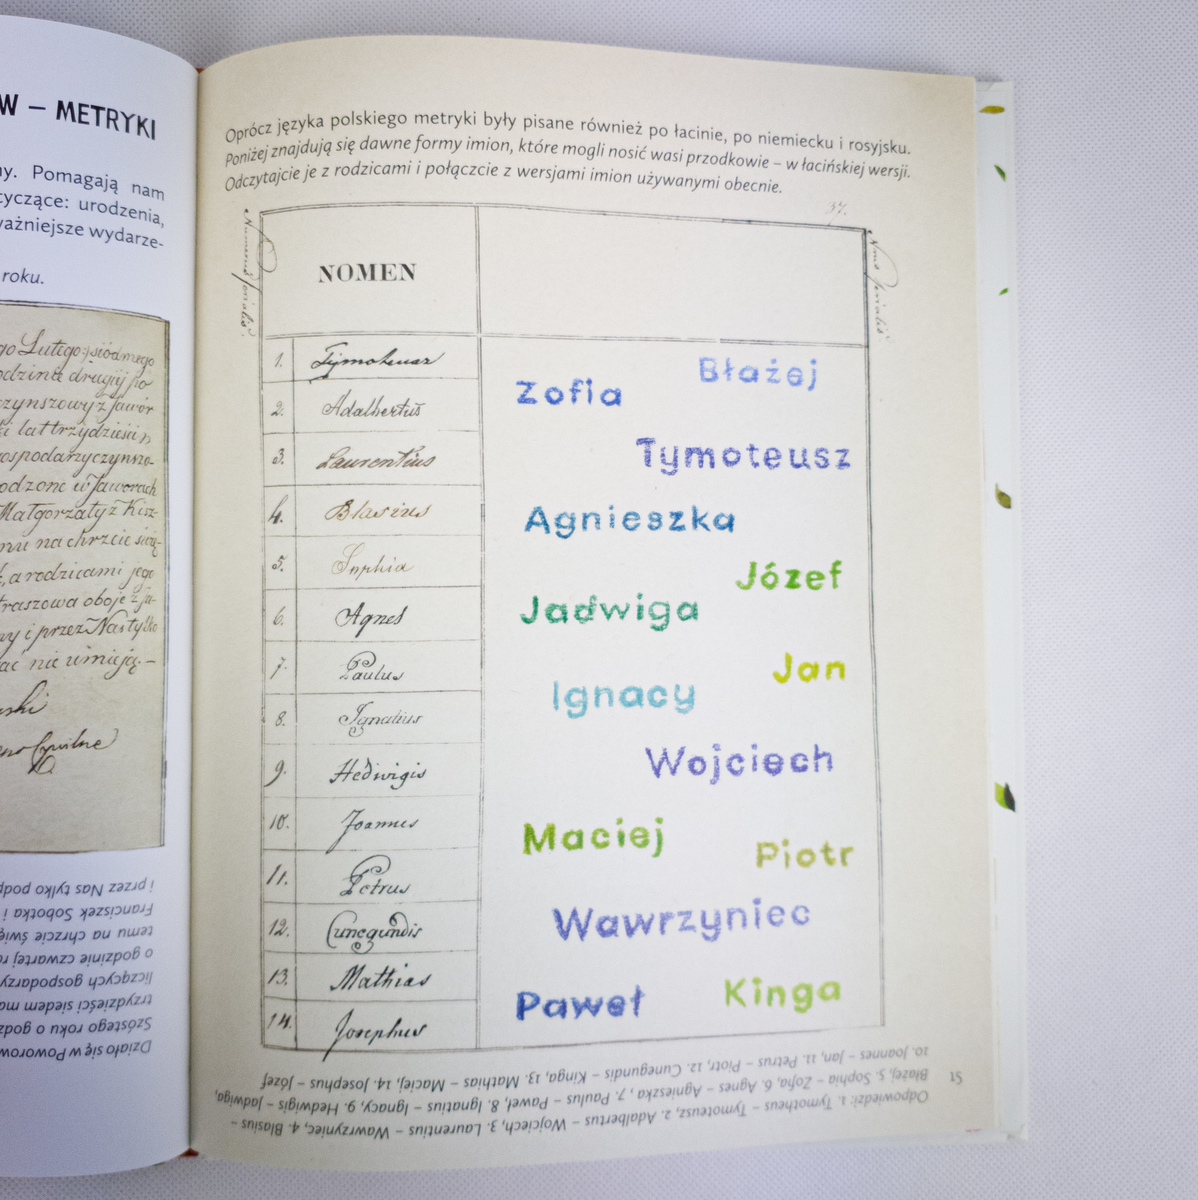 W – METRYKI
ny. Pomagają nam
tyczące: urodzenia,
ważniejsze wydarze-
roku.
go Lutego siódmego
odzinie drugiej po
czynszowy z Jawor
ki lat trzydzieści
ospodarz czynszo-
odzone w Jaworach
Małgorzaty z Kisz-
mu na chrzcie świę-
, a rodzicami jego
traszowa oboje
ny i przez Nas tylko
ać nie umieją. –
i przez Nas tylko podp
Franciszek Sobotka i
temu na chrzcie świę
o godzinie czwartej
liczących gospodarzy
trzydzieści siedem ma
Szóstego roku o godz
Działo się w Poworow
Oprócz języka polskiego metryki były pisane również po łacinie, po niemiecku i rosyjsku.
Poniżej znajdują się dawne formy imion, które mogli nosić wasi przodkowie – w łacińskiej wersji.
Odczytajcie je z rodzicami i połączcie z wersjami imion używanymi obecnie.
37.
NOMEN
1. Tymoteusz
2. Adalbertus
3. Laurentius
4. Blasius
5. Sophia
6. Agnes
7. Paulus
8. Ignatius
9. Hedwigis
10. Joannes
11. Petrus
12. Cunegundis
13. Mathias
14. Josephus
Błażej
Zofia
Tymoteusz
Agnieszka
Józef
Jadwiga
Jan
Ignacy
Wojciech
Maciej
Piotr
Wawrzyniec
Kinga
Paweł
Odpowiedzi: 1. Tymotheus – Tymoteusz, 2. Adalbertus – Wojciech, 3. Laurentius – Wawrzyniec, 4. Blasius –
Błażej, 5. Sophia – Zofia, 6. Agnes – Agnieszka, 7. Paulus – Paweł, 8. Ignatius – Ignacy, 9. Hedwigis – Jadwiga,
10. Joannes – Jan, 11. Petrus – Piotr, 12. Cunegundis – Kinga, 13. Mathias – Maciej, 14. Josephus – Józef
15